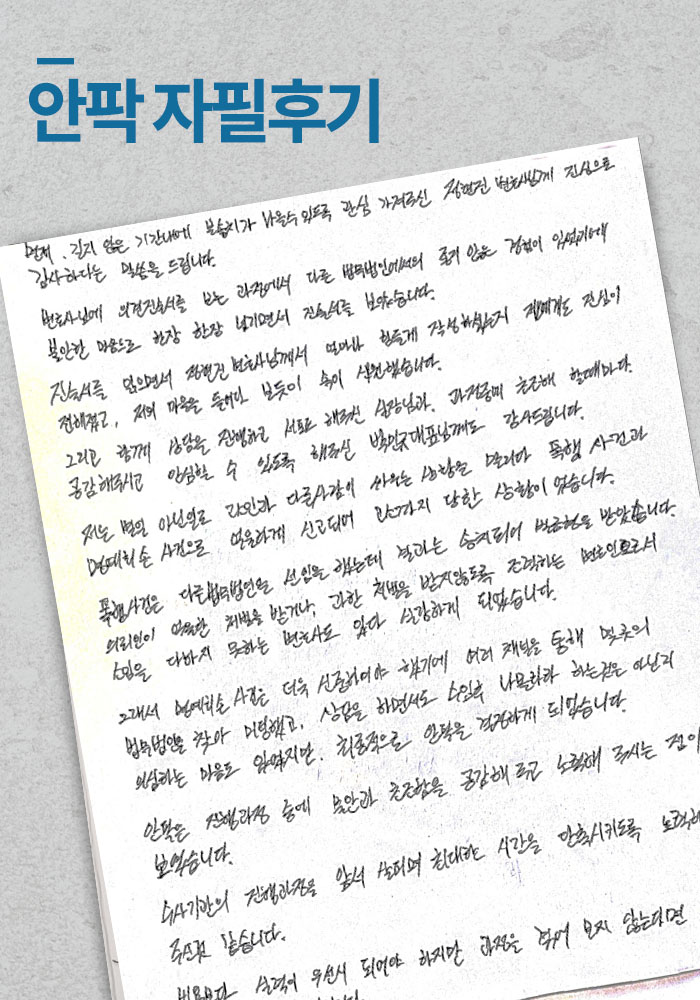 안팍 자필후기
먼저, 길지 않은 기간내에 불송치가 나올수 있도록 관심 가져주신 정현진 변호사님께 진심으로
감사하다는 말씀을 드립니다.
변호사님에 의견진술서를 보는 과정에서 다른 법무법인에서의 좋지 않은 경험이 있었기에
불안한 마음으로 한장 한장 넘기면서 진술서를 보았습니다.
진술서를 읽으면서 정현진 변호사님께서 얼마나 힘들게 작성하셨는지 저에게도 진심이
전해졌고, 저의 마음을 들여다 보듯이 속이 시원했습니다.
그리고 함께 상담을 진행하고 서포트 해주신 실장님과, 과정중에 초조해 할때마다
공감해주시고 안심할 수 있도록 해주신 대표님께도 감사드립니다.
저는 별일 아닌일로 라인과 다른사람이 싸우는 상황을 말리다 폭행 사건과
명예훼손 사건으로 억울하게 신고되어 고소까지 당한 상황이 었습니다.
폭행사건은 다른법무법인을 선임을 했는데 결과는 송치되어 벌금형을 받았습니다.
의뢰인이 억울한 처벌을 받거나, 과한 처벌을 받지않도록 조력하는 변호인으로서
소임을 다하지 못하는 변호사도 있다 실감하게 되었습니다.
그래서 명예훼손 사건은 더욱 신중해야 했기에 여러 채널을 통해 몇곳의
법무법인을 찾아 미팅했고, 상담을 하면서도 수임후 나몰라라 하는것은 아닌지
의심하는 마음도 있었지만, 최종적으로 안팍을 결정하게 되었습니다.
안팍은 진행과정 중에 불안과 초조함을 공감해 주고 노력해 주시는 점이
보였습니다.
수사기관의 진행과정을 앞서 살피며 최대한 시간을 단축시키도록 노력해
주신것 같습니다.
비용보다 실력이 우선시 되어야 하지만 과정을 겪어 보지 않는다면